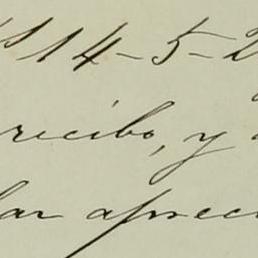 14-5-2
recibo, y
lar apreci